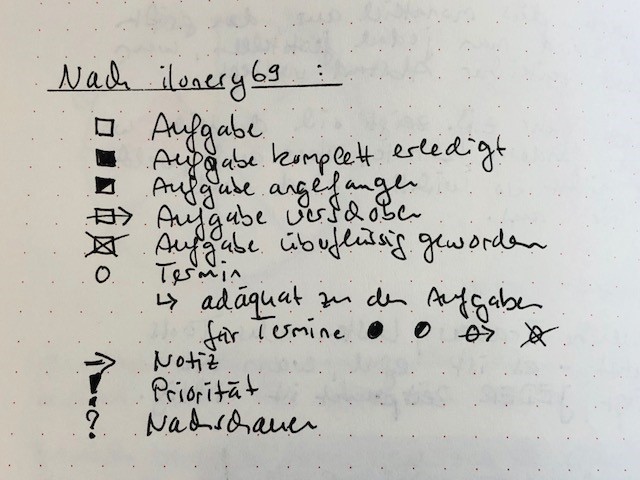 Nach ilonery69 :
□ Aufgabe
■ Aufgabe komplett erledigt
◩ Aufgabe angefangen
Aufgabe verschoben
☒ Aufgabe überflüssig geworden
○ Termin
↳ adäquat zu den Aufgaben
für Termine ● ○
→ Notiz
! Priorität
? Nachschauen